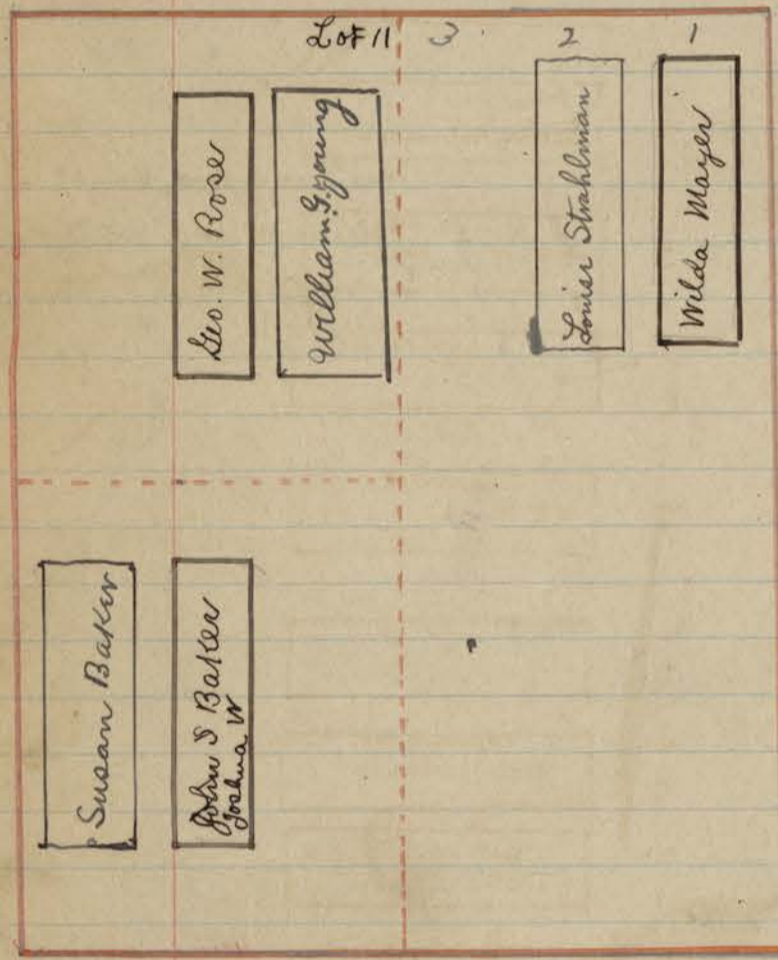 Lot 11 3 2 1
Geo. W. Rose
William G. Young
Louise Strahlman
Wilda Mayer
Susan Baker
John S Baker
Joshua W